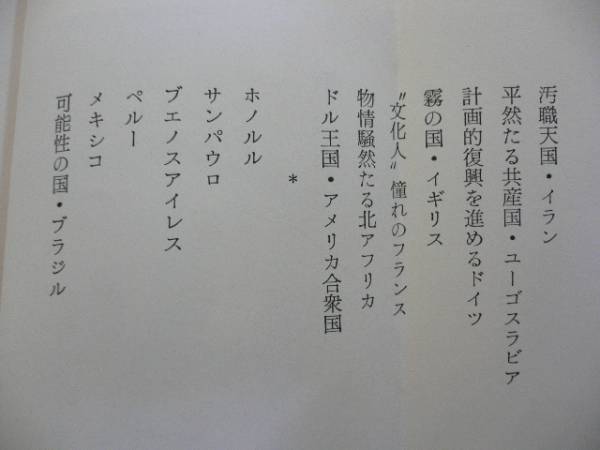 汚職天国・イラン
平然たる共産国・ユーゴスラビア
計画的復興を進めるドイツ
霧の国・イギリス
〝文化人〟憧れのフランス
物情騒然たる北アフリカ
ドル王国・アメリカ合衆国
*
ホノルル
サンパウロ
ブエノスアイレス
ペルー
メキシコ
可能性の国・ブラジル